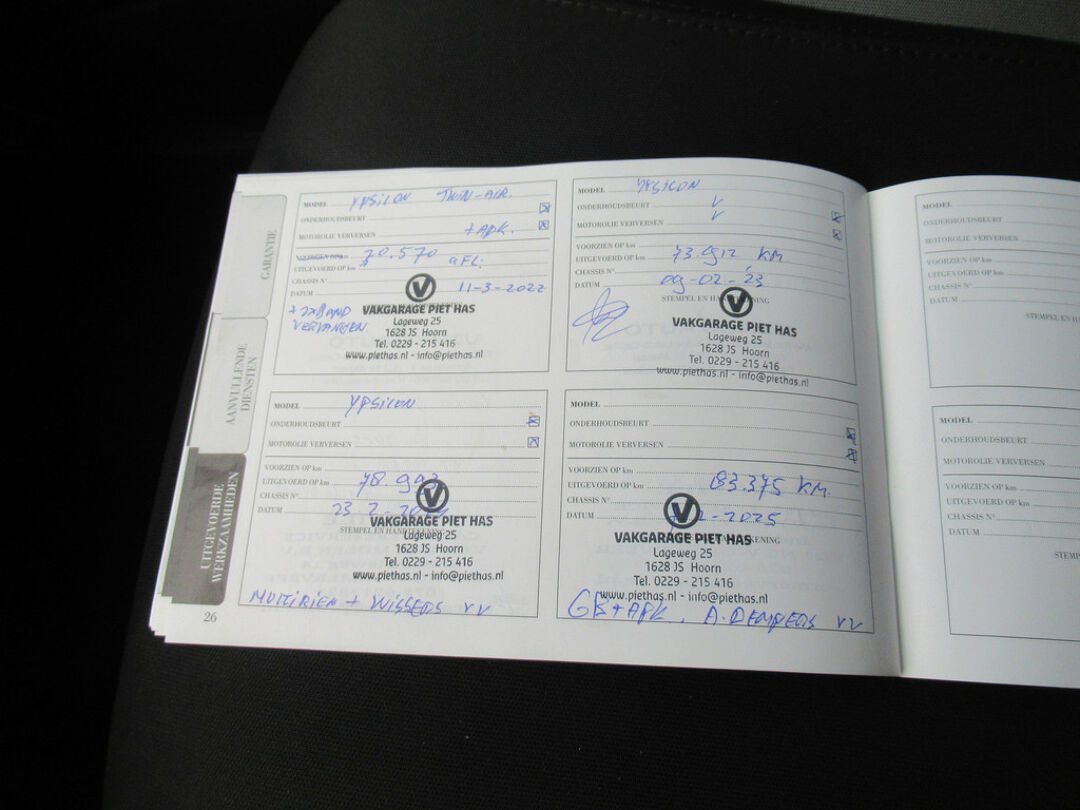 GARANTIE
AANVULLENDE
DIENSTEN
UITGEVOERDE
WERKZAAMHEDEN
26
MODEL YPSILON TWIN-AIR.
ONDERHOUDSBEURT
MOTOROLIE VERVERSEN + APK.
VOORZIEN OP km 70.570
UITGEVOERD OP km AFL:
CHASSIS N°
DATUM 11-3-2022
VERVANGEN.
VAKGARAGE PIET HAS
Lageweg 25
1628 JS Hoorn
Tel. 0229 - 215 416
www.piethas.nl - info@piethas.nl
MODEL YPSILON
ONDERHOUDSBEURT V
MOTOROLIE VERVERSEN V
VOORZIEN OP km
UITGEVOERD OP km 73.912 KM
CHASSIS N°
DATUM 09-02-'23
STEMPEL EN HANDTEKENING
VAKGARAGE PIET HAS
Lageweg 25
1628 JS Hoorn
Tel. 0229 - 215 416
www.piethas.nl - info@piethas.nl
MODEL YPSILON
ONDERHOUDSBEURT
MOTOROLIE VERVERSEN
VOORZIEN OP km
UITGEVOERD OP km 78.993
CHASSIS N°
DATUM 23 2-
STEMPEL EN HANDTEKENING
VAKGARAGE PIET HAS
Lageweg 25
1628 JS Hoorn
Tel. 0229 - 215 416
www.piethas.nl - info@piethas.nl
MULTIRIEM + WISSERS VV
MODEL
ONDERHOUDSBEURT
MOTOROLIE VERVERSEN
VOORZIEN OP km
UITGEVOERD OP km 83.375 KM.
CHASSIS N°
DATUM 2-2025
VAKGARAGE PIET HAS
Lageweg 25
1628 JS Hoorn
Tel. 0229 - 215 416
www.piethas.nl - info@piethas.nl
GB + APK. A. DEMPERS VV
MODEL
ONDERHOUDSBEURT
MOTOROLIE VERVERSEN
VOORZIEN OP km
UITGEVOERD OP km
CHASSIS N°
DATUM
STEMPEL EN
MODEL
ONDERHOUDSBEURT
MOTOROLIE VERVERSEN
VOORZIEN OP km
UITGEVOERD OP km
CHASSIS N°
DATUM